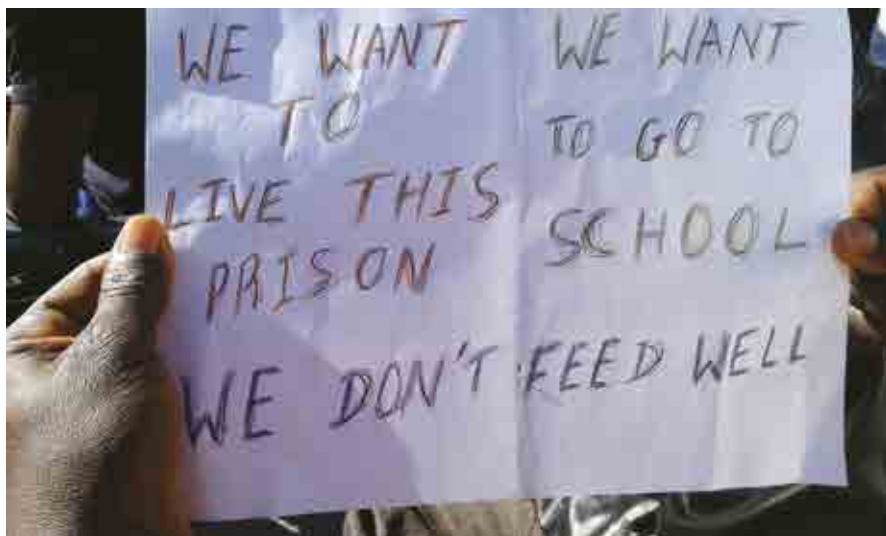 WE WANT
TO
LIVE THIS
PRISON
WE WANT
TO GO TO
SCHOOL
WE DON'T FEED WELL